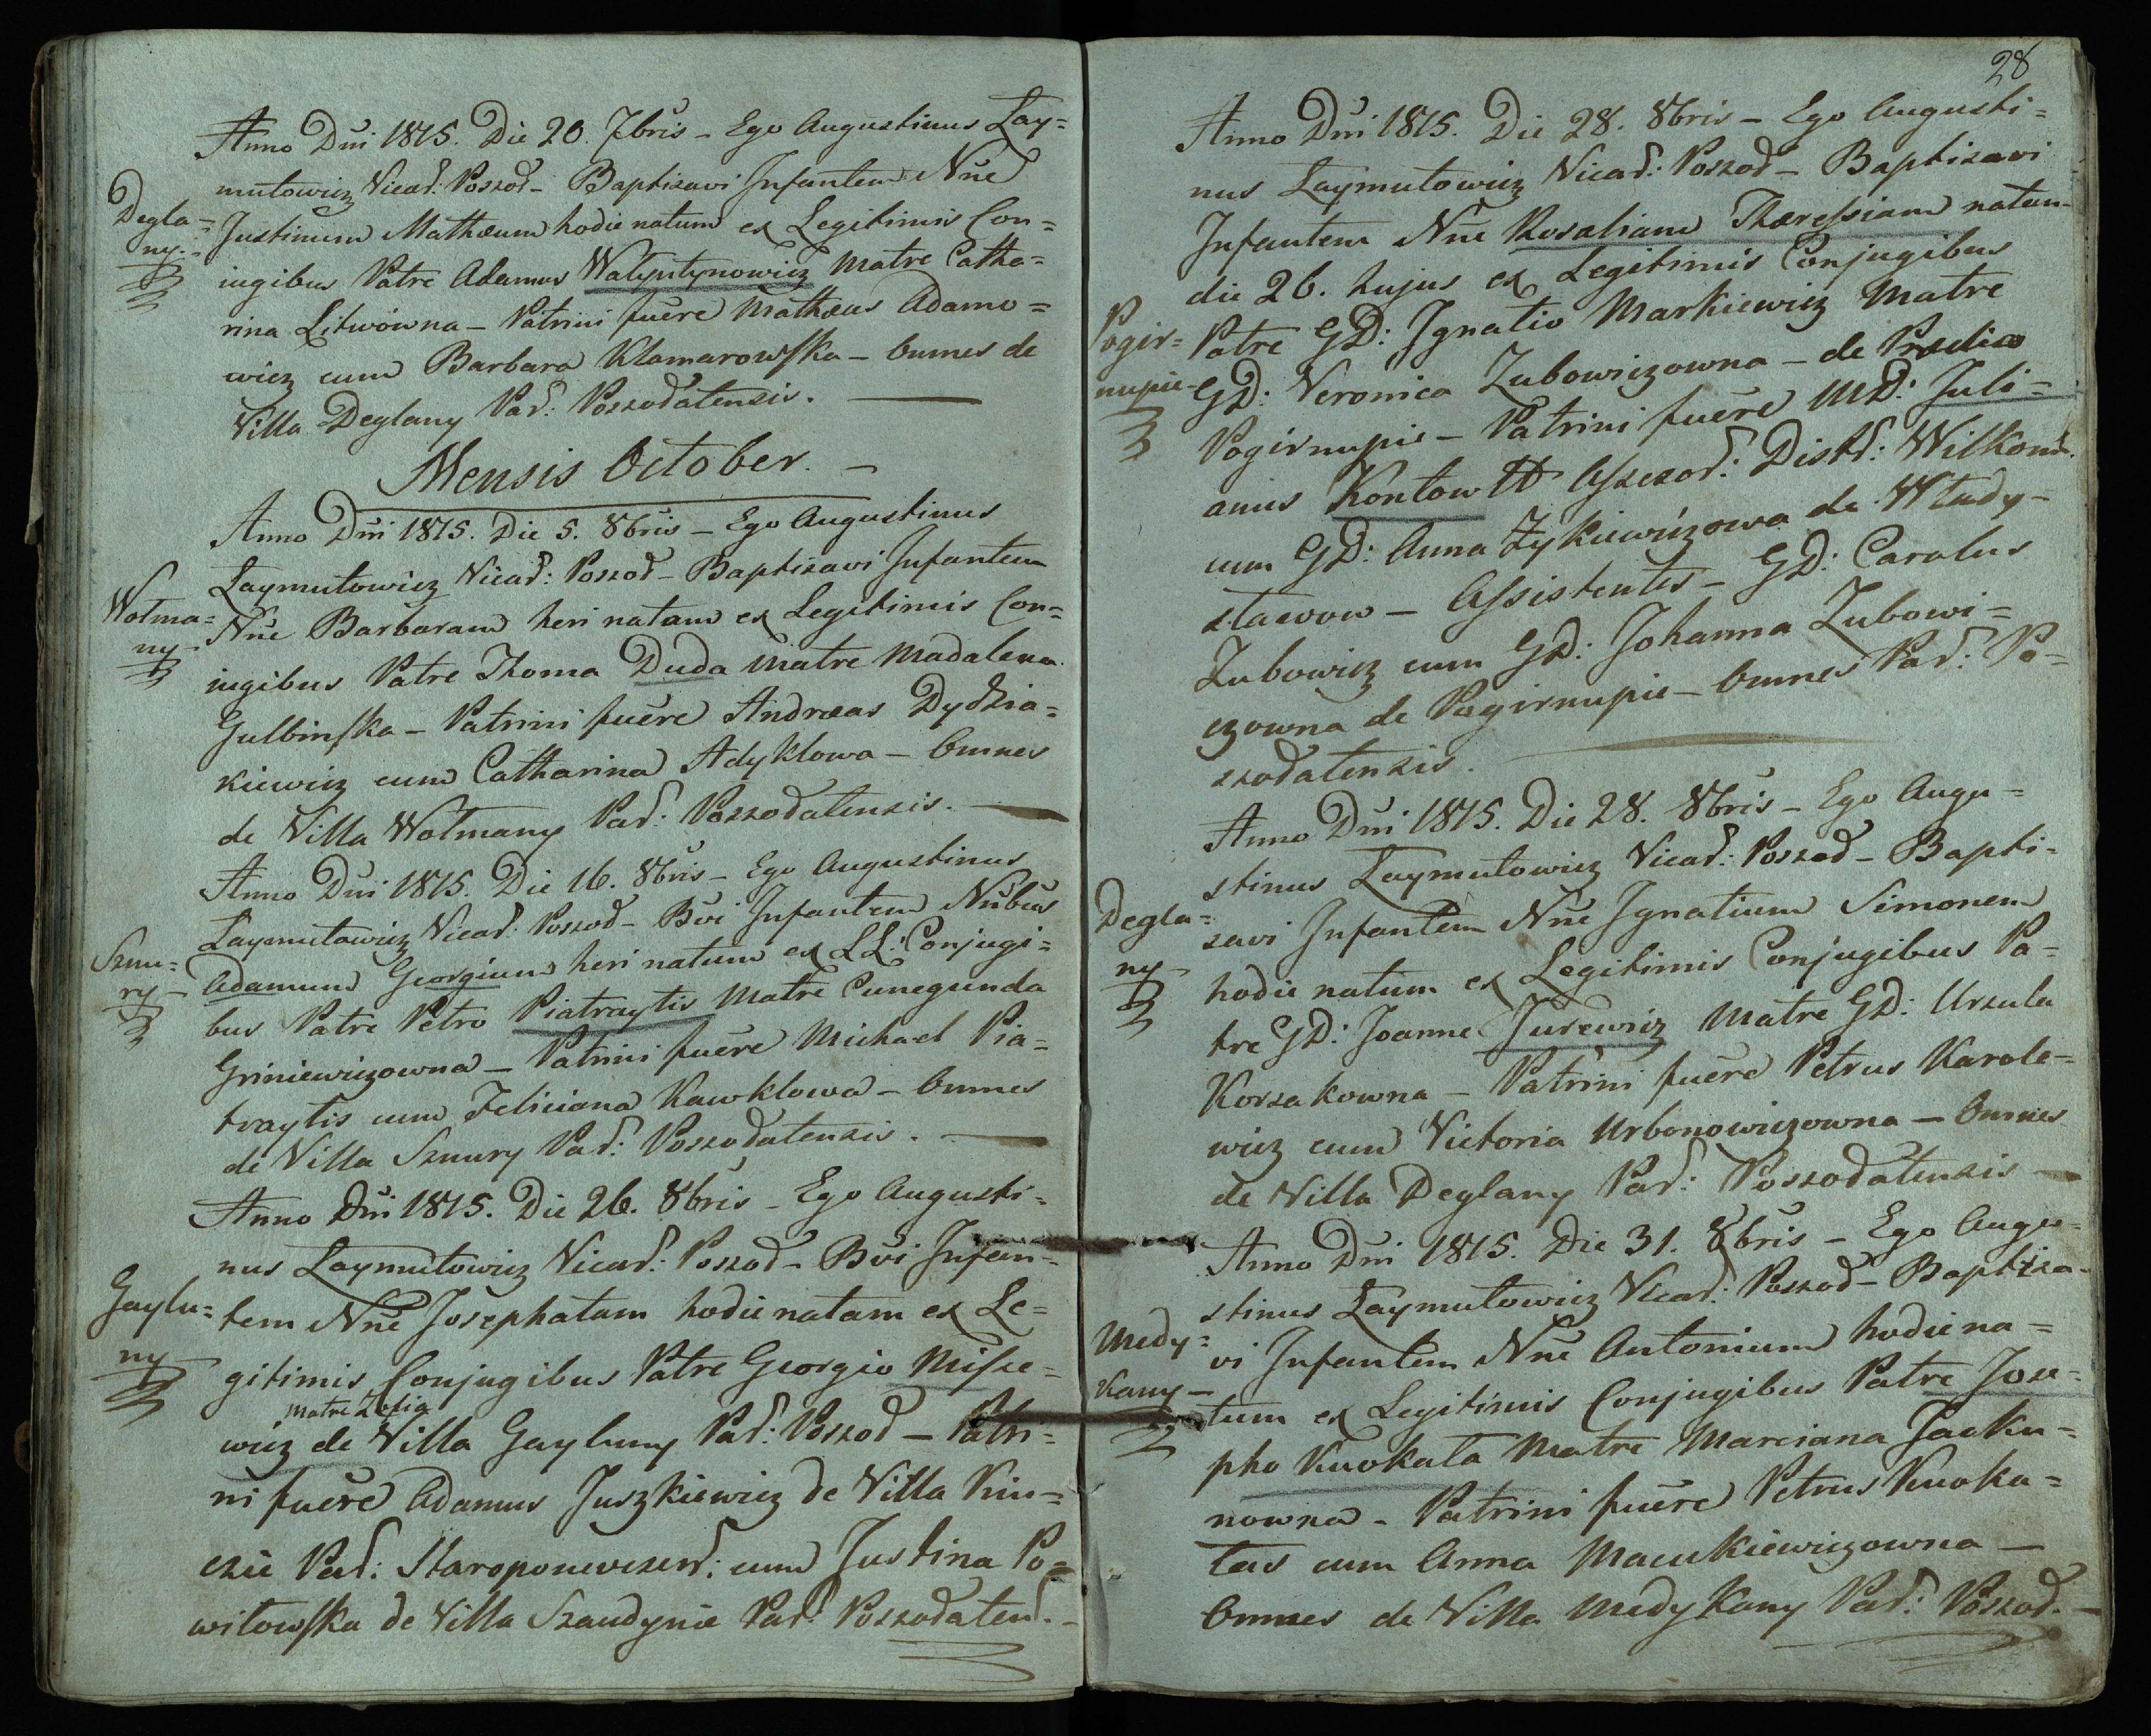 Anno Dni 1815. Die 20. 7bris - Ego Augustinus Lay=
mutowicz Vicar: Poszod - Baptisavi Infantem Nne
Degla=
ny.
Justinum Mathæum hodie natum ex Legitimis Con=
iugibus Patre Adamus Walyntynowicz Matre Catha=
rina Litwówna - Patrini fuere Mathæus Adamo=
wicz cum Barbara Klamarowska - Omnes de
Villa Deglany Par: Poszodatensis.
Mensis October. -
Anno Dni 1815. Die 5. 8bris - Ego Augustinus
Laymutowicz Vicar: Poszod - Baptisavi Infantem
Wołma=
ny
Nne Barbaram heri natam ex Legitimis Con=
iugibus Patre Thoma Duda Matre Madalena
Gulbinska - Patrini fuere Andræas Dydzia=
kiewicz cum Catharina Adyklowa - Omnes
de Villa Wołmany Par: Poszodatensis.
Anno Dni 1815. Die 16. 8bris - Ego Augustinus
Laymutowicz Vicar: Poszod - Bvi Infantem Nnbus
Sznu=
ry
Adamum Georgium heri natum ex LL: Conjugi=
bus Patre Petro Piatraytis Matre Cunegunda
Griniewiczowna - Patrini fuere Michael Pia=
traytis cum Feliciana Kawklowa - Omnes
de Villa Sznury Par: Poszodatensis.
Anno Dni 1815. Die 26. 8bris - Ego Augusti=
nus Laymutowicz Vicar: Poszod - Bvi Infan=
Gaylu=
ny
tem Nne Josephatam hodie natam ex Le=
gitimis Conjugibus Patre Georgio Misze=
Matre Zofia
wicz de Villa Gayluny Par: Poszod - Patri=
ni fuere Adamus Juszkiewicz de Villa Kin=
czie Par: Staroponevezen: cum Justina Po=
witowska de Villa Szaudynie Par: Poszodaten. -
28
Anno Dni 1815. Die 28. 8bris - Ego Augusti=
nus Laymutowicz Vicar: Poszod - Baptisavi
Infantem Nne Rosaliam Thæressiam natam
die 26. hujus ex Legitimis Conjugibus
Pogir=
nupie
Patre GD: Ignatio Markiewicz Matre
GD: Veronica Zubowiczowna - de Prædio
Pogirnupie - Patrini fuere MD: Juli=
anus Kontowtt Assesor: Distr: Wilkom:
cum GD: Anna Zykiewiczowa de Wlady=
stawow - Assistentes - GD: Carolus
Zubowicz cum GD: Johanna Zubowi=
czowna de Pogirnupie - Omnes Par: Po=
szodatensis.
Anno Dni 1815. Die 28. 8bris - Ego Augu=
stinus Laymutowicz Vicar: Poszod - Bapti=
Degla=
ny
savi Infantem Nne Ignatium Simonem
hodie natum ex Legitimis Conjugibus Pa=
tre GD: Joanne Jurewicz Matre GD: Urzula
Korzakowna - Patrini fuere Petrus Karole=
wicz cum Victoria Urbonowiczowna - Omnes
de Villa Deglany Par: Poszodatensis -
Anno Dni 1815. Die 31. 8bris - Ego Augu=
stinus Laymutowicz Vicar: Poszod - Baptisa=
Medy=
kany
vi Infantem Nne Antonium hodie na=
tum ex Legitimis Conjugibus Patre Jose=
pho Kuokała Matre Marciana Jacku=
nowna - Patrini fuere Petrus Kuoka=
las cum Anna Macukiewiczowna -
Omnes de Villa Medykany Par: Poszod. -